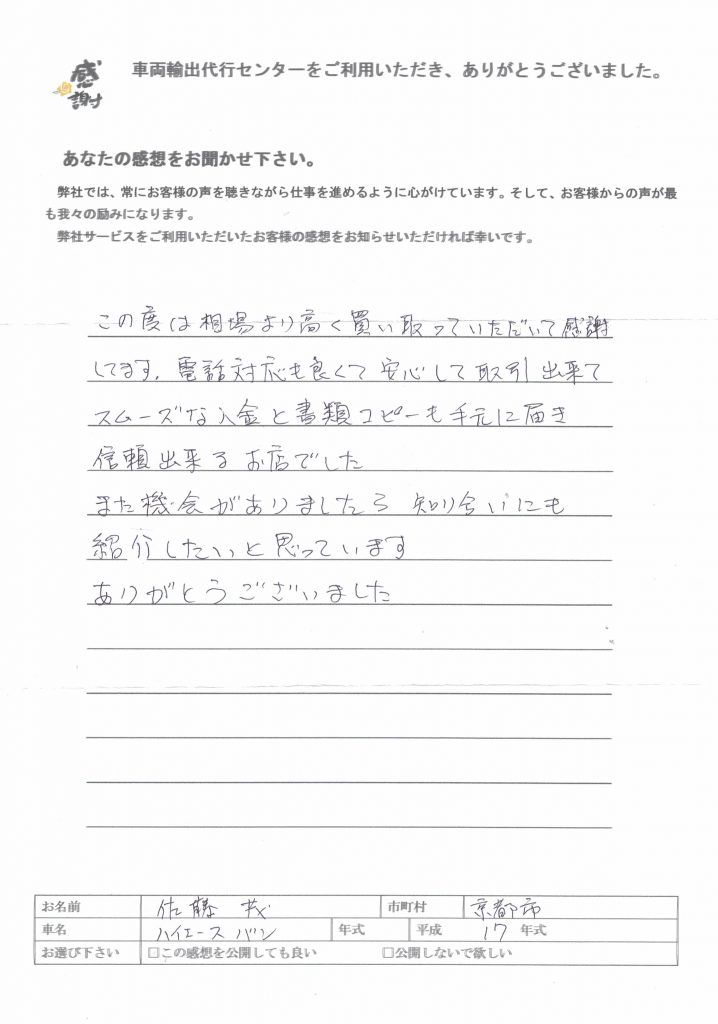 感謝
車両輸出代行センターをご利用いただき、ありがとうございました。
あなたの感想をお聞かせ下さい。
弊社では、常にお客様の声を聴きながら仕事を進めるように心がけています。そして、お客様からの声が最
も我々の励みになります。
弊社サービスをご利用いただいたお客様の感想をお知らせいただければ幸いです。
この度は相場より高く買い取っていただいて感謝
してます。電話対応も良くて安心して取引出来て
スムーズな入金と書類コピーも手元に届き
信頼出来るお店でした
また機会がありましたら知り合いにも
紹介したいと思っています
ありがとうございました
お名前 佐藤 茂 市町村 京都市
車名 ハイエース バン 年式 平成 17 年式
お選び下さい □この感想を公開しても良い □公開しないで欲しい